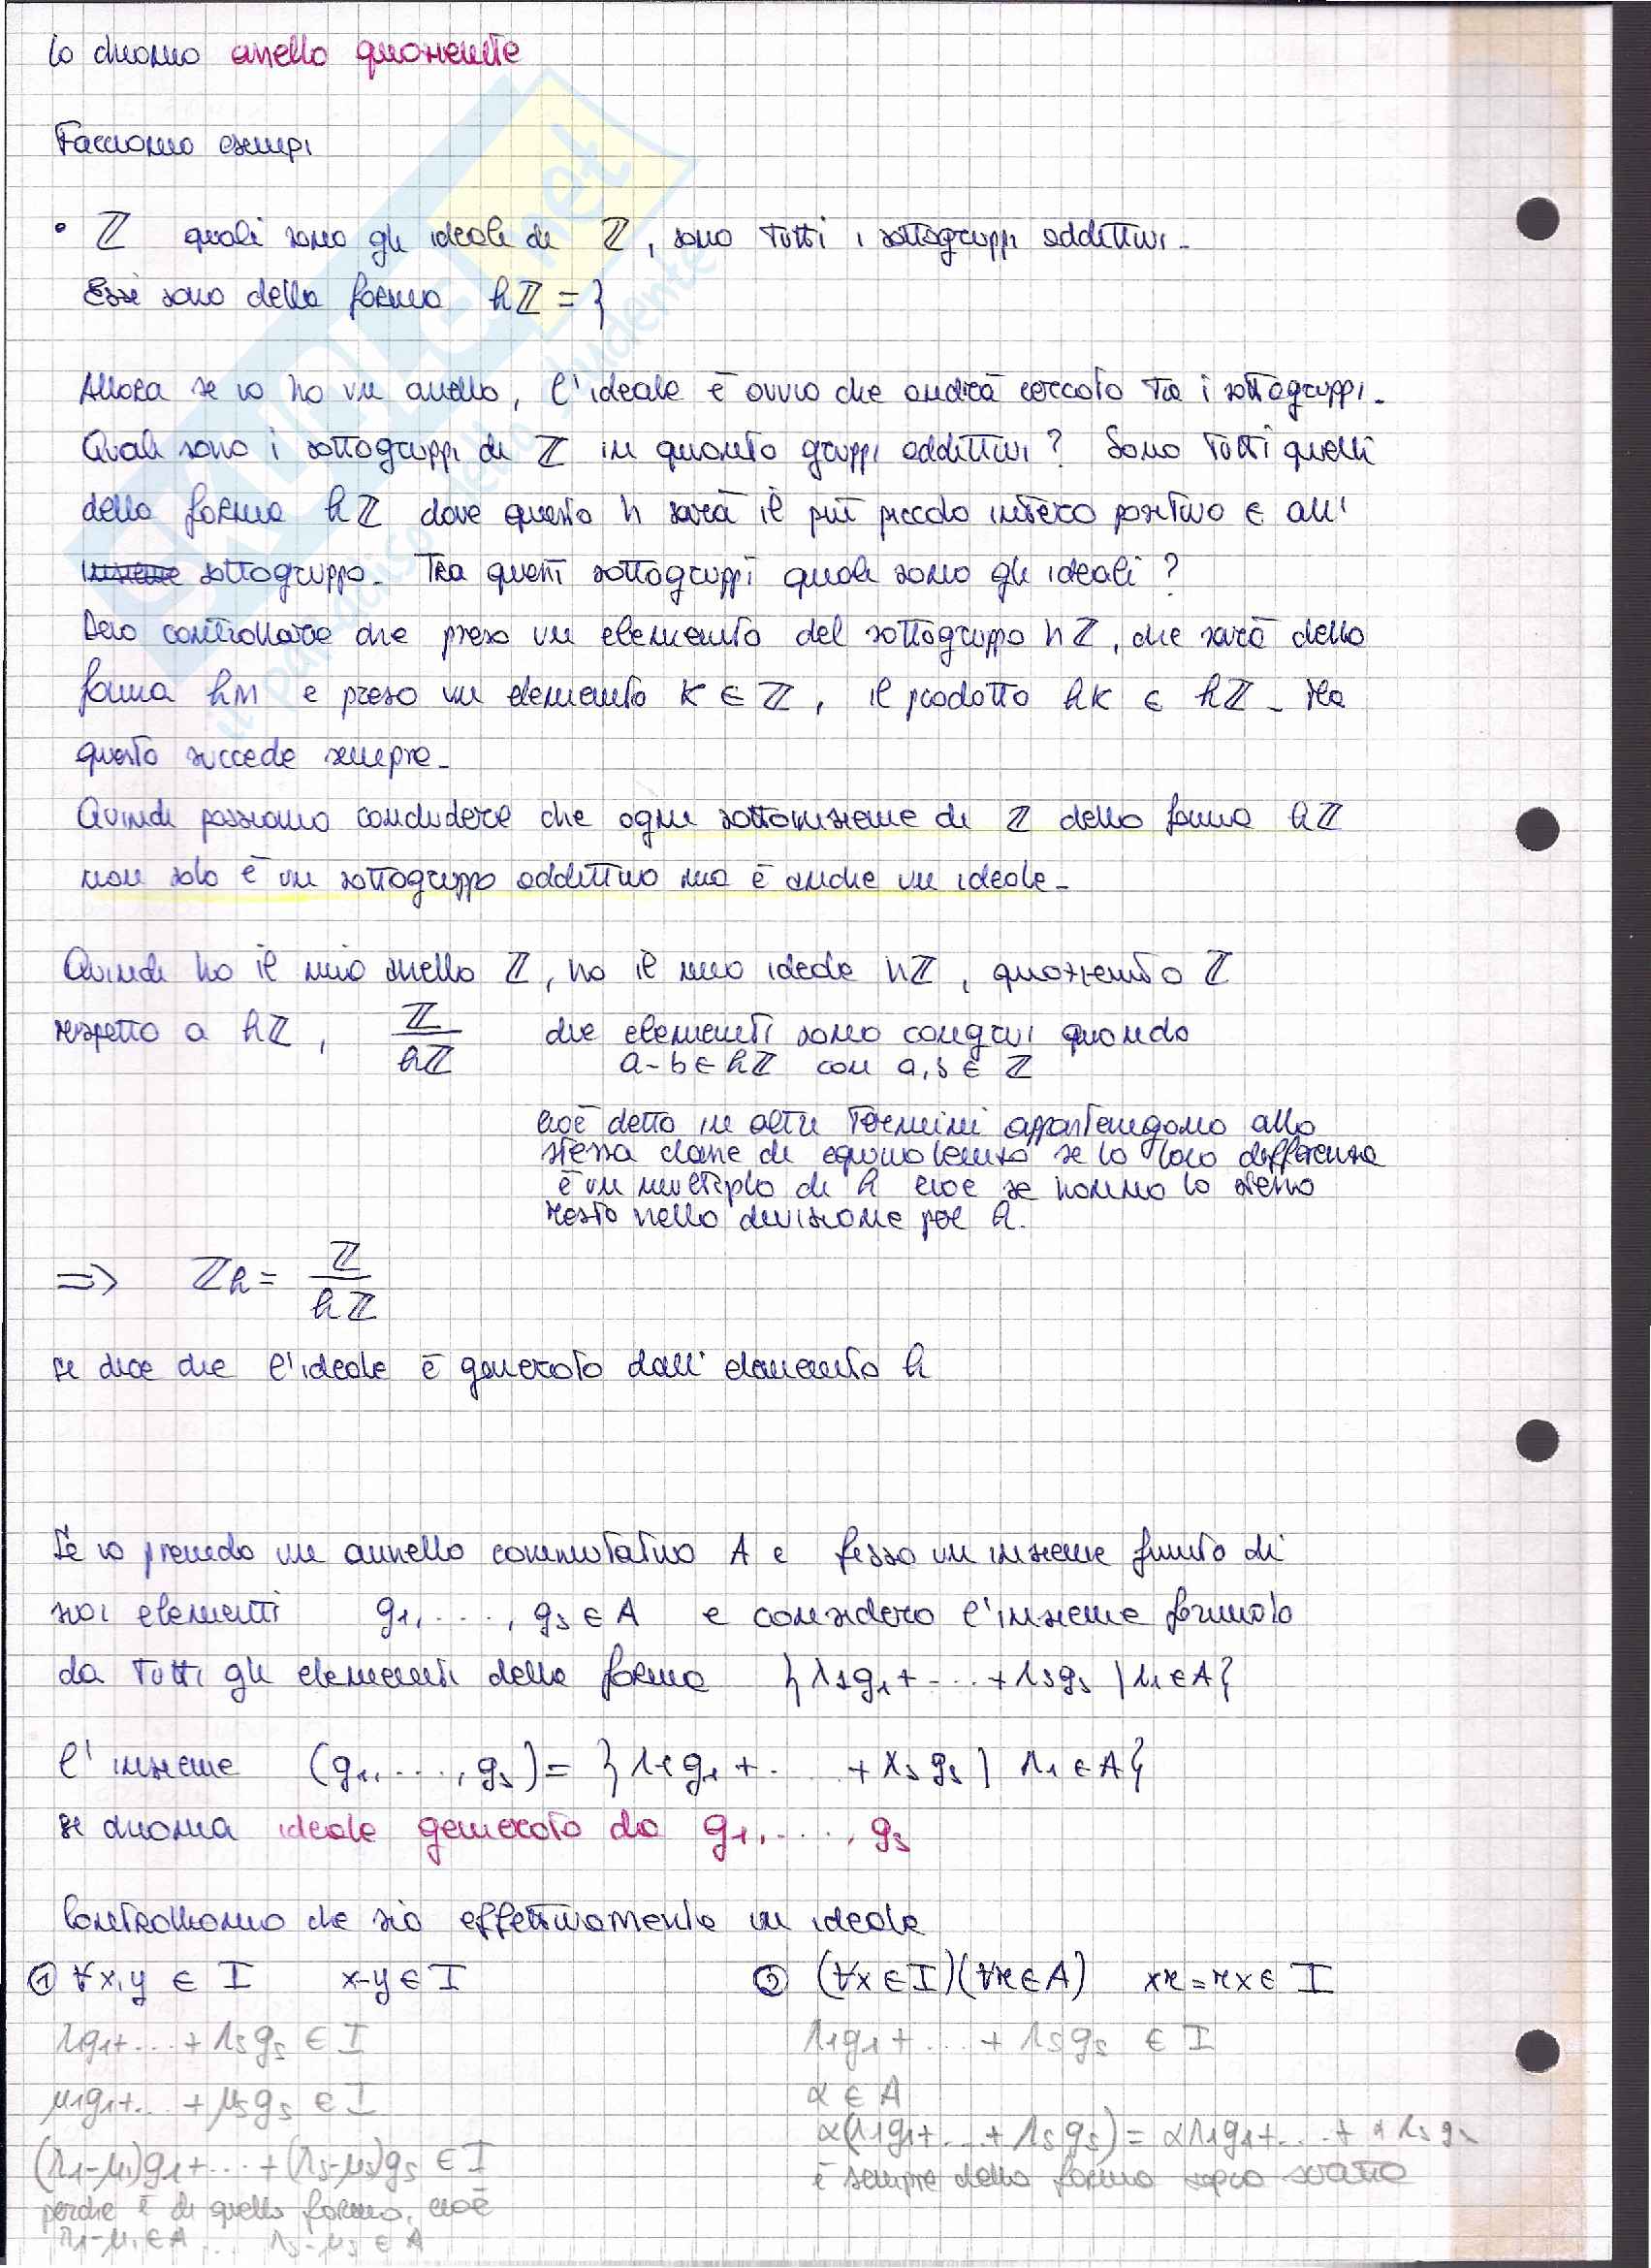 lo chiamo anello quoziente
Facciamo esempi
• ℤ quali sono gli ideali di ℤ, sono tutti i sottogruppi addittivi.
Essi sono della forma hℤ = }
Allora se io ho un anello, l'ideale è ovvio che andrà cercato tra i sottogruppi.
Quali sono i sottogruppi di ℤ in quanto gruppi addittivi? Sono tutti quelli
della forma hℤ dove questo h sarà il più piccolo intero positivo ∈ all'
sottogruppo. Tra questi sottogruppi quali sono gli ideali?
Devo controllare che preso un elemento del sottogruppo hℤ, che sarà della
forma hm e preso un elemento K ∈ ℤ, il prodotto hK ∈ hℤ. Ma
questo succede sempre.
Quindi possiamo concludere che ogni sottoinsieme di ℤ della forma hℤ
non solo è un sottogruppo addittivo ma è anche un ideale.
Quindi ho il mio anello ℤ, ho il mio ideale hℤ, quoziento ℤ
rispetto a hℤ, ℤ/hℤ due elementi sono congrui quando
a-b ∈ hℤ con a,b ∈ ℤ
cioè detto in altri termini appartengono alla
stessa classe di equivalenza se la loro differenza
è un multiplo di h cioè se hanno lo stesso
resto nella divisione per h.
=> ℤh = ℤ/hℤ
si dice che l'ideale è generato dall'elemento h
Se io prendo un annello commutativo A e fisso un insieme finito di
suoi elementi g1, ...., gs ∈ A e considero l'insieme formato
da tutti gli elementi della forma } λ1g1 + .... + λsgs | λi ∈ A {
l'insieme (g1, ...., gs) = } λ1g1 + .... + λsgs | λi ∈ A {
si chiama ideale generato da g1, ...., gs
Controlliamo che sia effettivamente un ideale
① ∀x,y ∈ I x-y ∈ I ② (∀x ∈ I)(∀r ∈ A) xr = rx ∈ I
λ1g1 + ... + λsgs ∈ I λ1g1 + ... + λsgs ∈ I
μ1g1 + ... + μsgs ∈ I α ∈ A
α(λ1g1 + ... + λsgs) = αλ1g1 + ... + αλsgs
(λ1-μ1)g1 + ... + (λs-μs)gs ∈ I è sempre della forma sopra scritta
perché è di quella forma, cioè
λ1-μ1 ∈ A ... λs-μs ∈ A